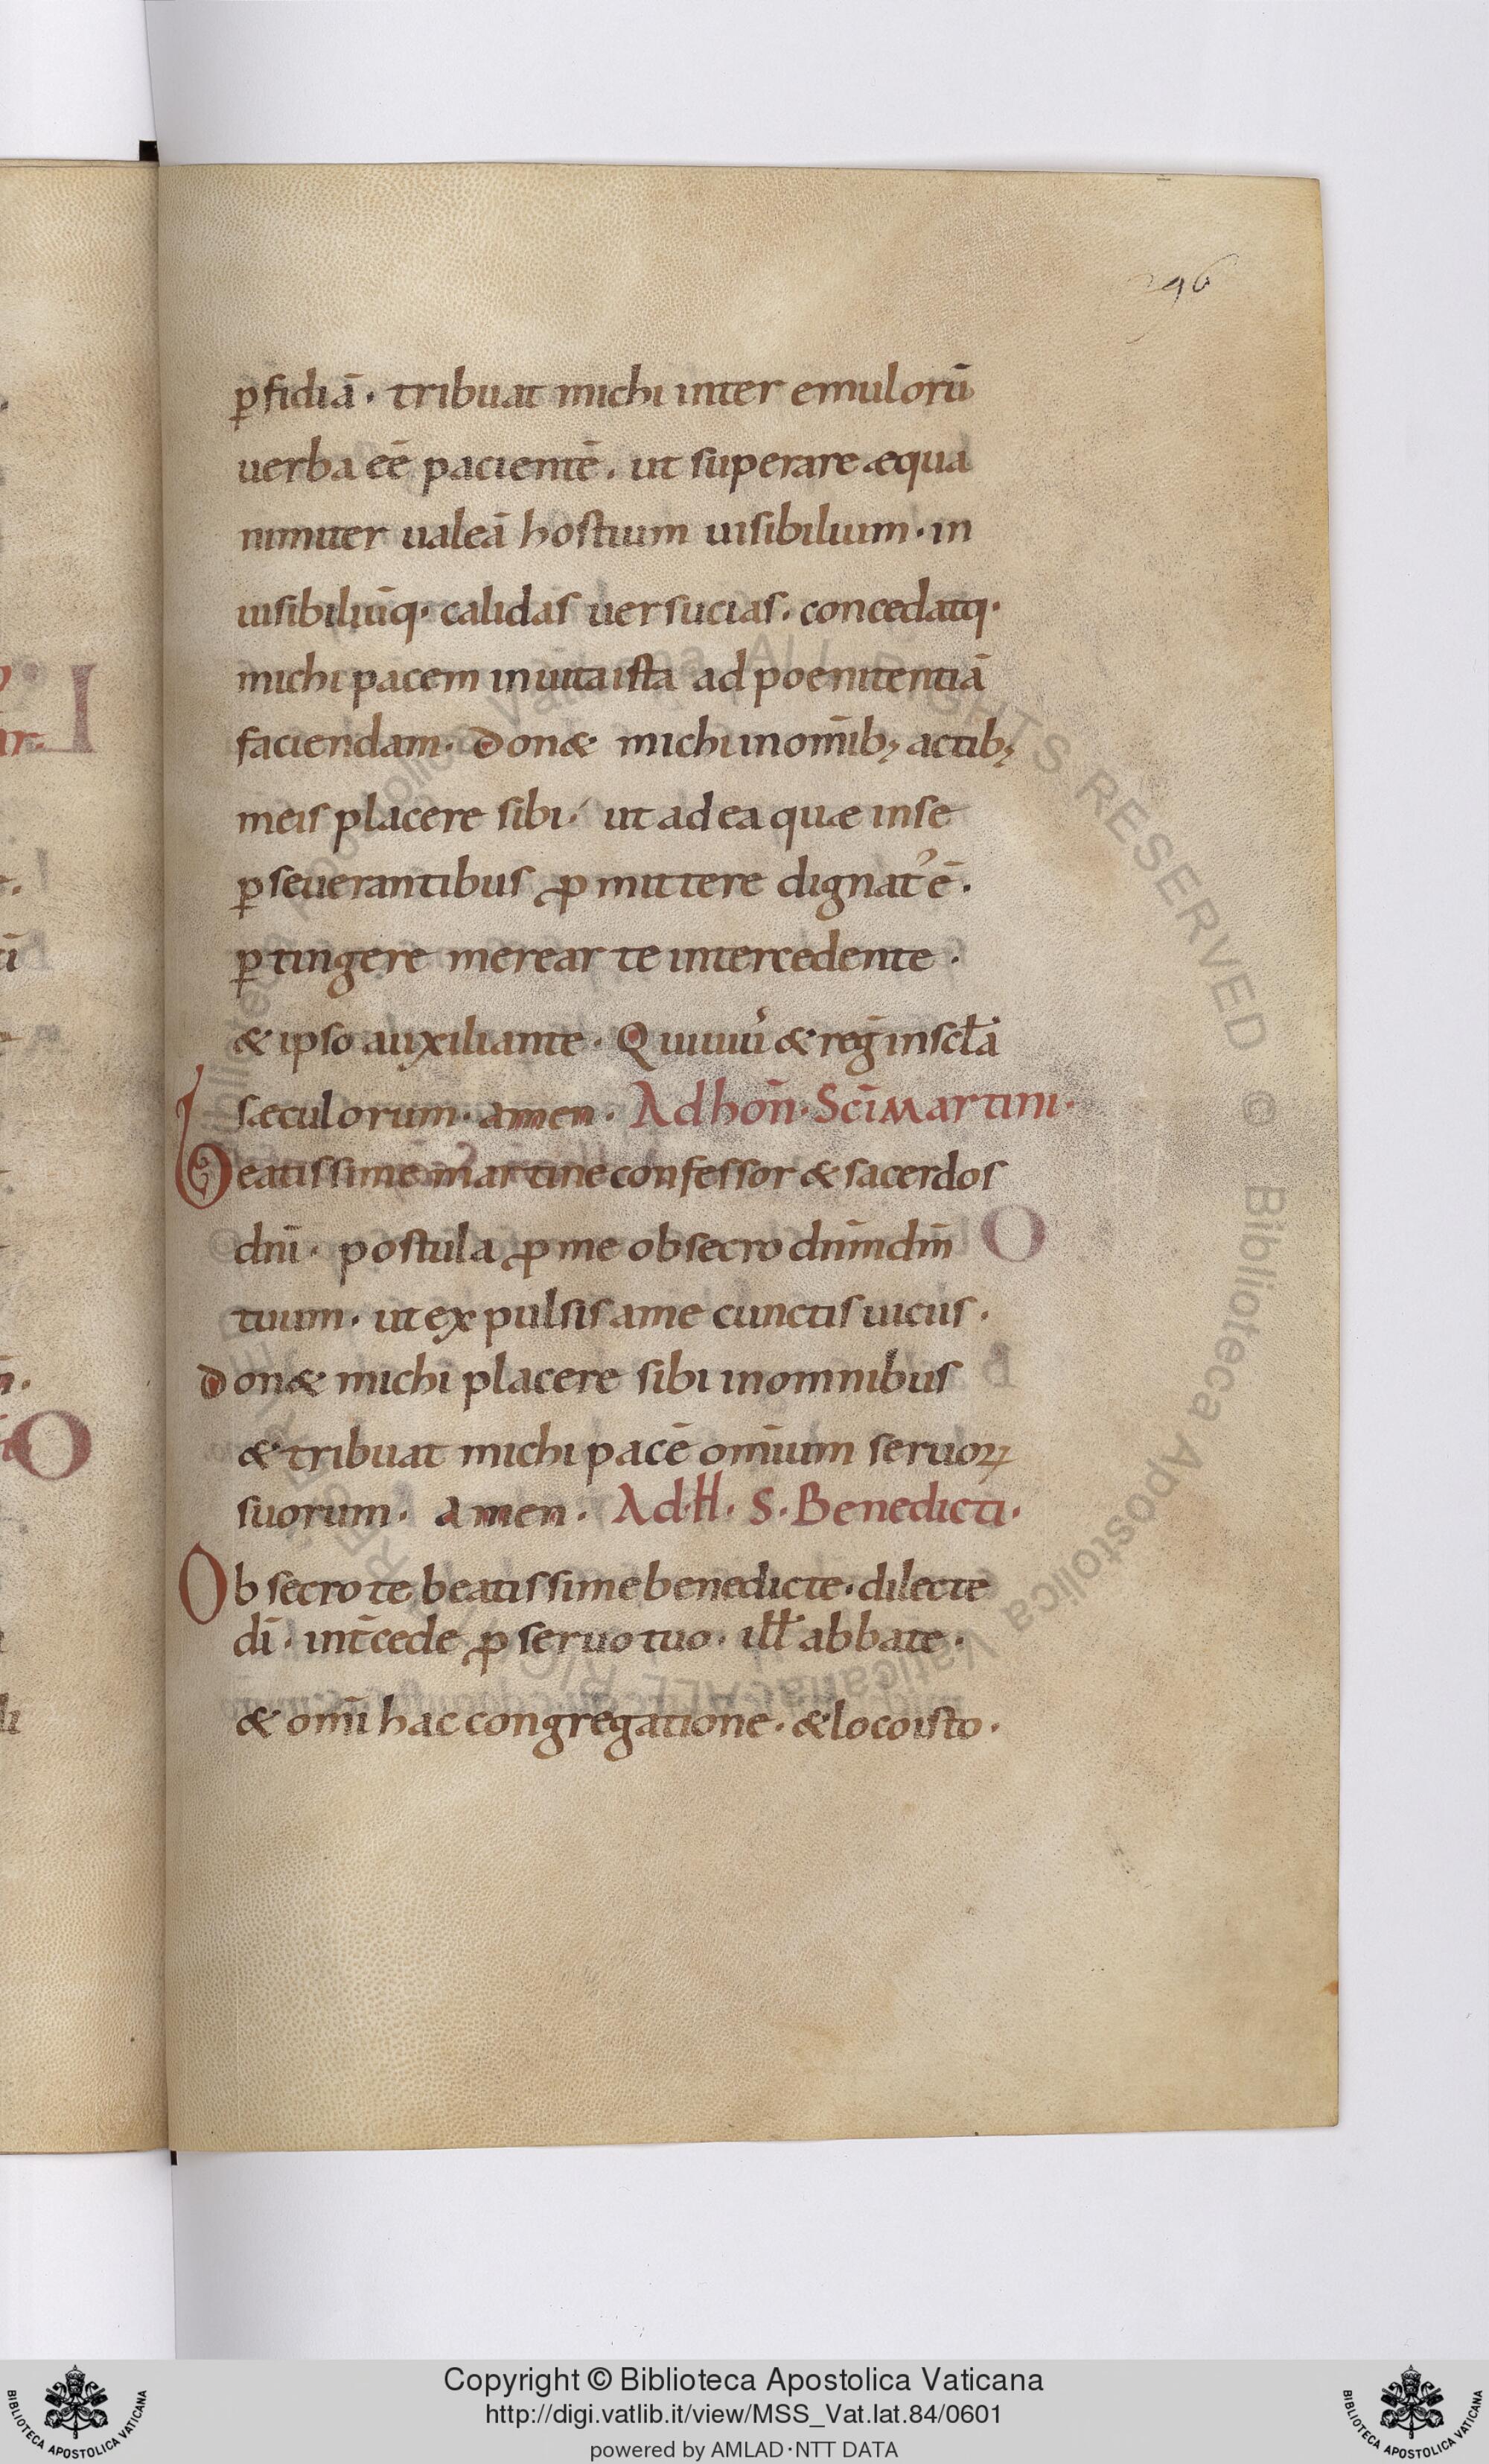 296
ꝑfidiā · tribuat michi inter emulorū
uerba eē pacientē . ut superare æqua
nimiter ualeā hostium uisibilium · in
uisibiliūq· calidas uersucias . concedatq·
michi pacem in uita ista ad poenitentiā
faciendam · don& michi in om̄ib; actib;
meis placere sibi · ut ad ea quæ in se
ꝑseuerantibus ꝓmittere dignat᾽ ē ·
ꝑtingere merear te intercedente ·
& ipso auxiliante · Qui uiu᾽ & reḡ in scła
sæculorum · amen · Ad hoñ · Sc̄i martini ·
Beatissime martine confessor & sacerdos
dn̄i · postula ꝓ me obsecro dn̄m dm̄
tuum · ut expulsis a me cunctis uiciis ·
don& michi placere sibi in omnibus
& tribuat michi pacē om̄ium seruoꝝ
suorum · amen · Ad · H · S · Benedicti ·
Obsecro te beatissime benedicte · dilecte
dī · int̄cede ꝓ seruo tuo · iłł abbate ·
& om̄i hac congregatione · & loco isto ·
Copyright © Biblioteca Apostolica Vaticana
http://digi.vatlib.it/view/MSS_Vat.lat.84/0601
powered by AMLAD·NTT DATA
BIBLIOTECA APOSTOLICA VATICANA
BIBLIOTECA APOSTOLICA VATICANA